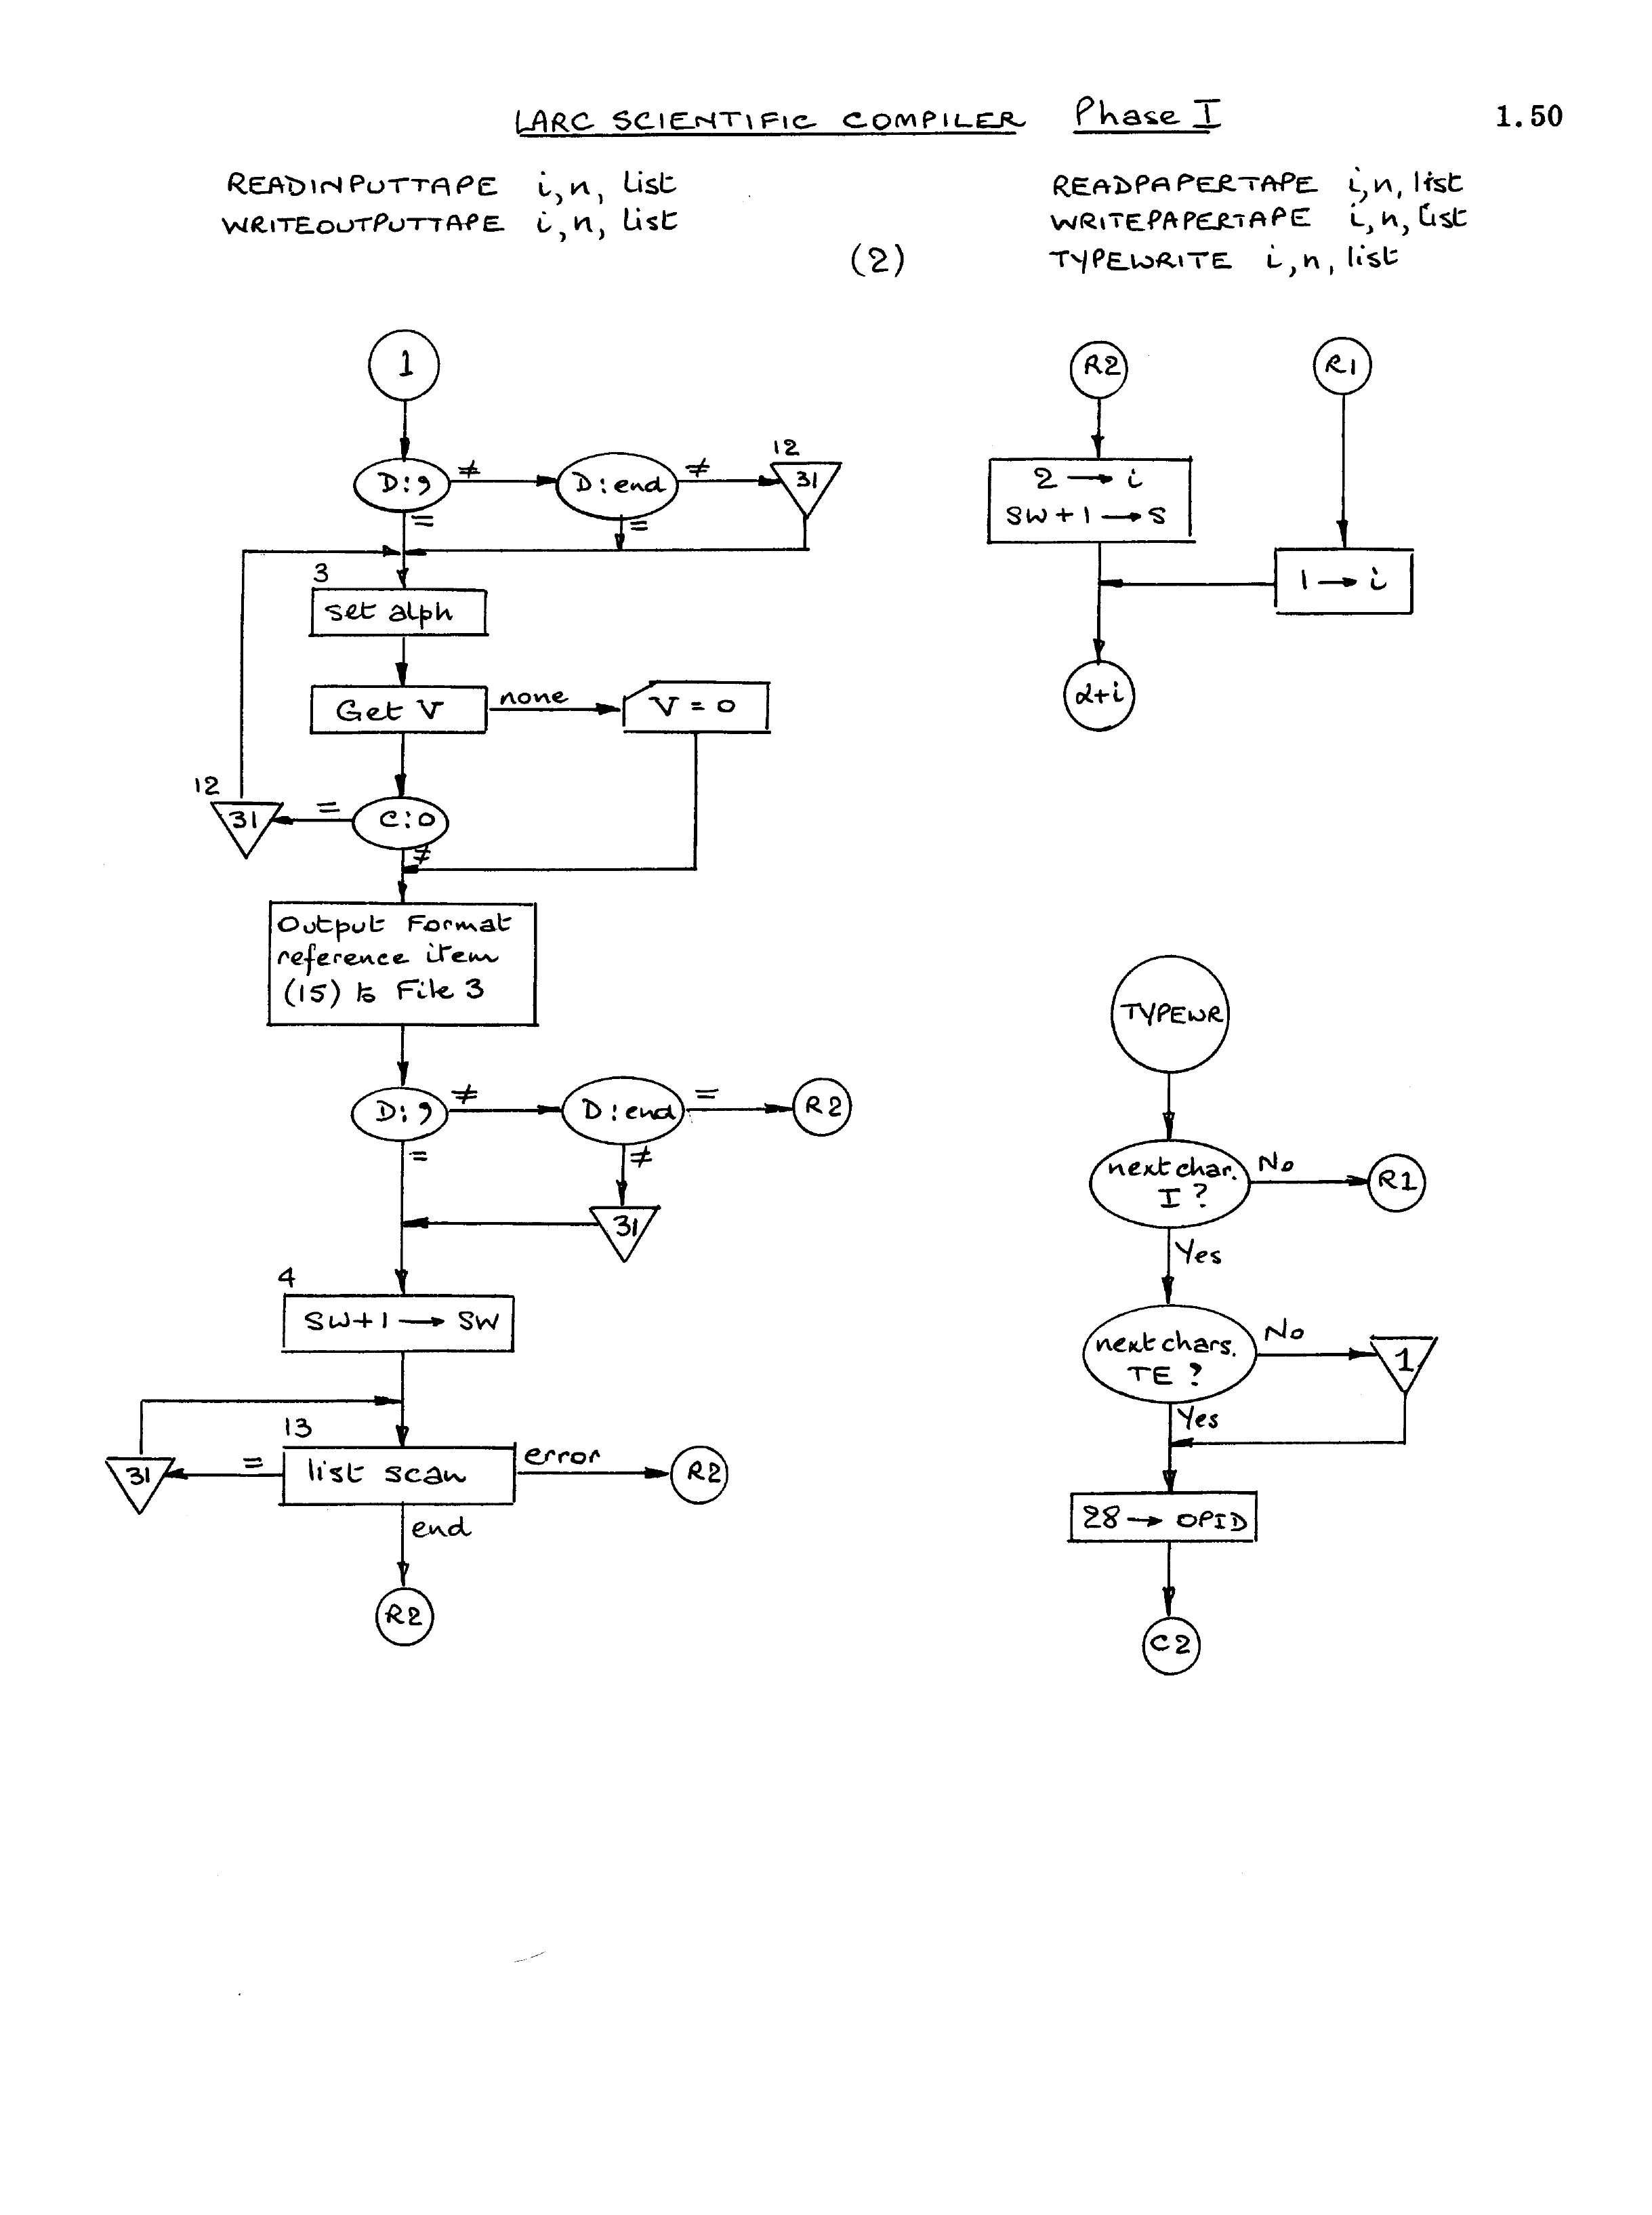 LARC SCIENTIFIC COMPILER Phase I 1.50
READINPUTTAPE i,n, list
WRITEOUTPUTTAPE i,n, list
READPAPERTAPE i,n, list
WRITEPAPERTAPE i,n, list
TYPEWRITE i,n, list
(2)
1
D:, ≠ D:end ≠ 12 31
= =
3
set alph
Get V none V = 0
12
31 = C:0
≠
Output Format
reference item
(15) to File 3
D:, ≠ D:end = R2
= ≠
31
4
SW+1 → SW
13
31 = list scan error R2
end
R2
R2 R1
2 → i
SW+1 → S
1 → i
α+i
TYPEWR
next char. No R1
I ?
Yes
next chars. No 1
TE ?
Yes
28 → OPID
C2